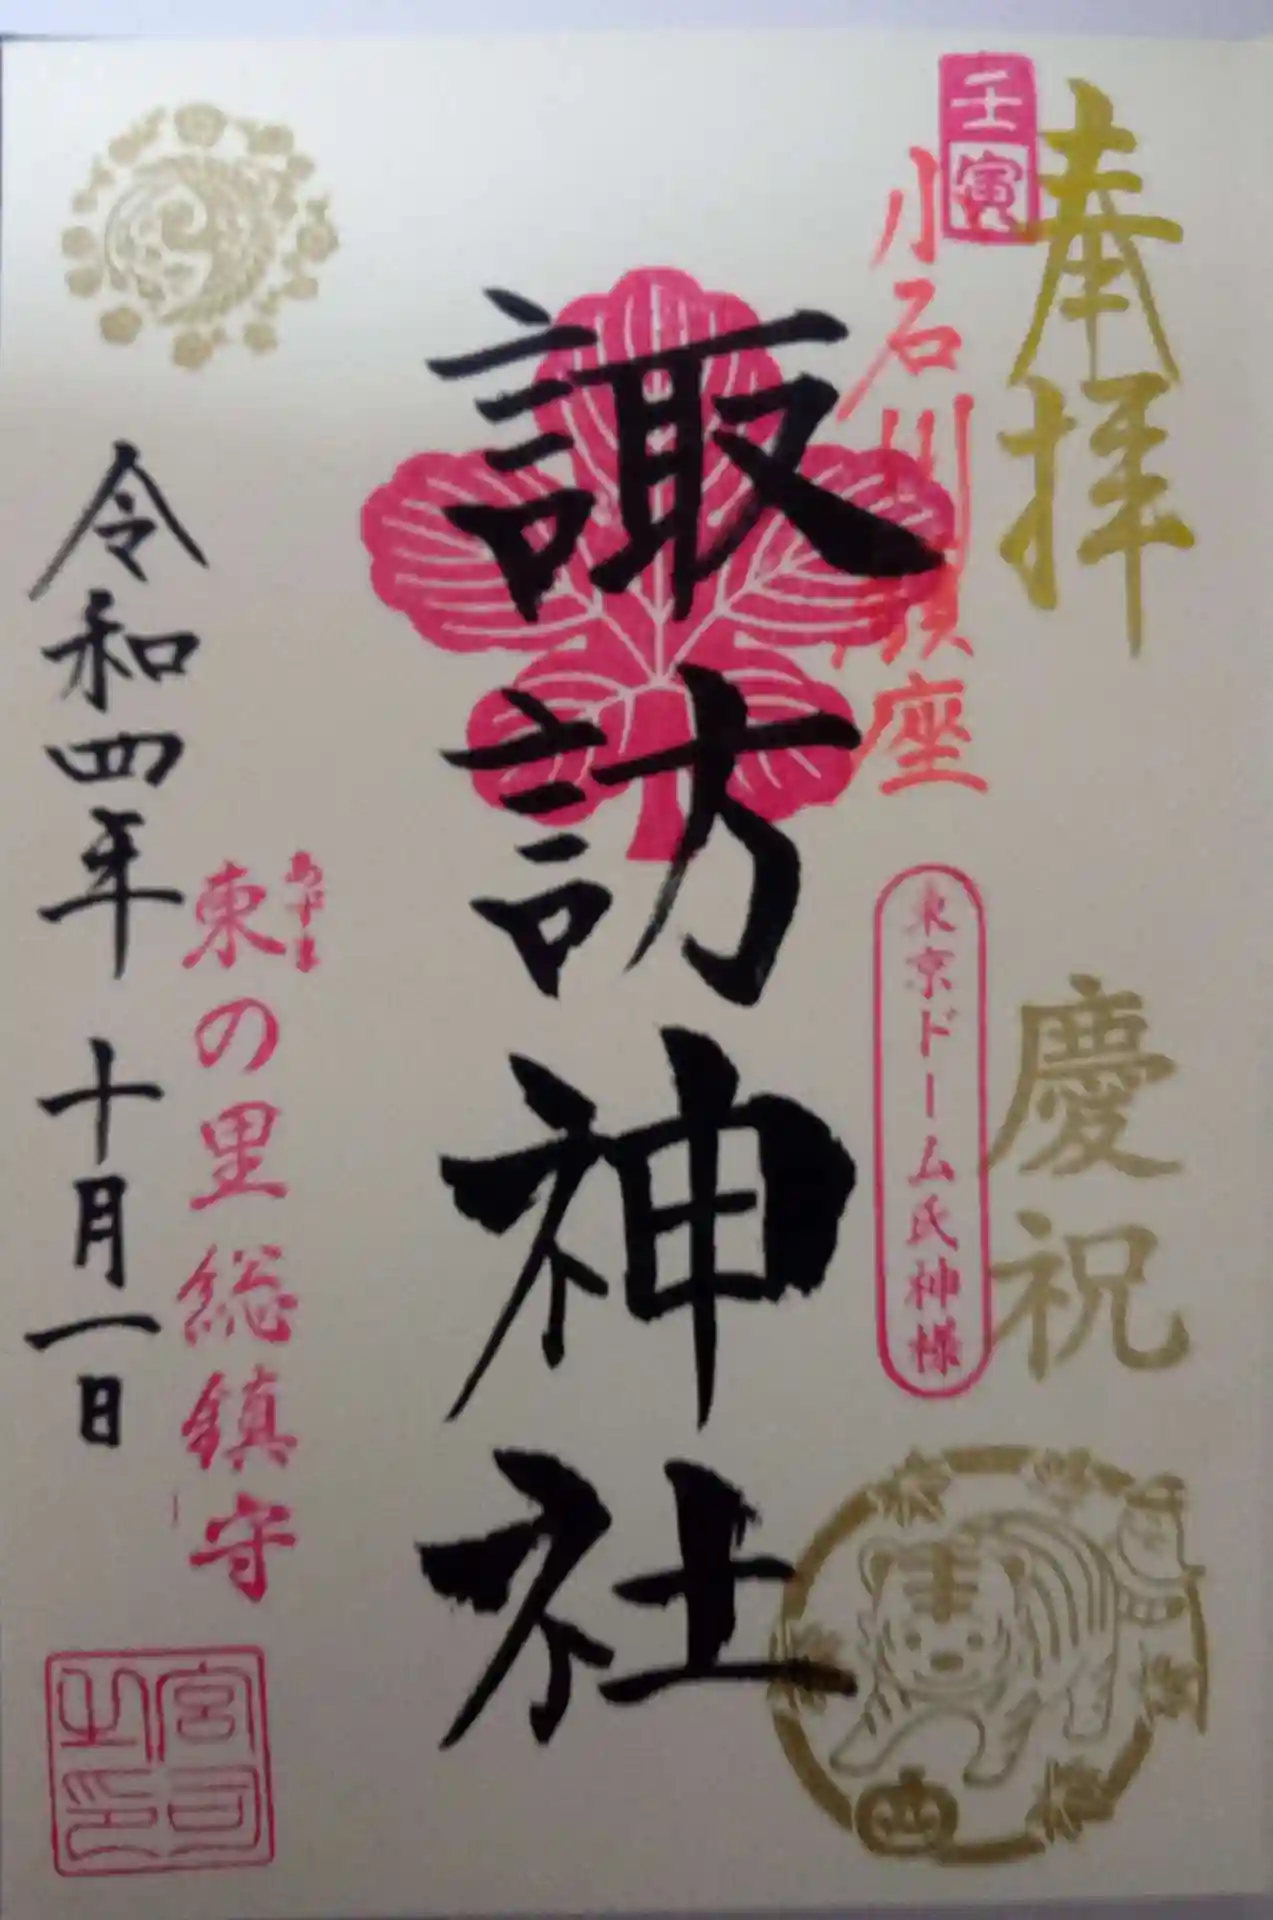 奉拝
慶祝
壬寅
小石川鎮座
東京ドーム氏神様
諏訪神社
あずま
東の里総鎮守
令和四年 十月一日
宮司
之印